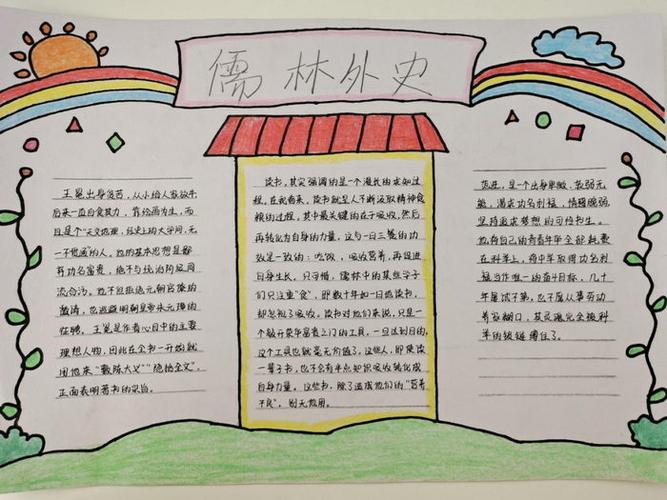 儒林外史
王冕出身贫苦，从小给人家放牛
后来一直自食其力，靠绘画为生，而
且是个“天文地理，经史上的大学问，无
一不贯通”的人。他的基本思想是鄙
弃功名富贵，绝不与统治阶级同
流合污。他不但拒绝元朝官僚的
邀请，也逃避明朝皇帝朱元璋的
征聘。王冕是作者心目中的主要
理想人物，因此在全书一开始就
用他来“敷陈大义”“隐括全文”，
正面表明著书的宗旨。
读书，其实强调的是一个漫长的求知过
程，在我看来，读书就是人不断汲取精神食
粮的过程，其中最关键的在于吸收，然后
再转化为自身的力量，这与一日三餐的功
效是一致的：吃饭，吸收营养，再促进
自身生长。只可惜，儒林中的某些学子
们只注重“食”，即数十年如一日地读书，
却忽视了吸收。读书对他们来说，只是一
个敲开荣华富贵之门的工具，一旦达到目的，
这个工具也就毫无价值了。这些人，即使读
一辈子书，也不会有半点知识吸收转化成
自身力量。这些书，除了造成他们的“营养
不良”，别无他用。
范进，是一个出身卑微，故弱无
能，渴求功名利禄，情趣脆弱，
坚持追求梦想的可怜书生。
他将自己的青春年华全部耗费
在科举上，将中举取得功名利
禄当作唯一的奋斗目标，几十
年屡试不第，也不愿从事劳动
养家糊口，其灵魂完全被科
举的枷锁缚住了。